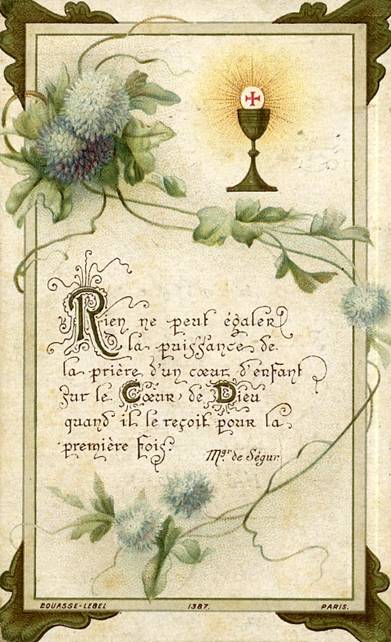 Rien ne peut égaler
la puissance de
la prière d'un cœur d'enfant
sur le Cœur de Dieu
quand il le reçoit pour la
première fois.
Mgr de Ségur.
BOUASSE-LEBEL 1387. PARIS.